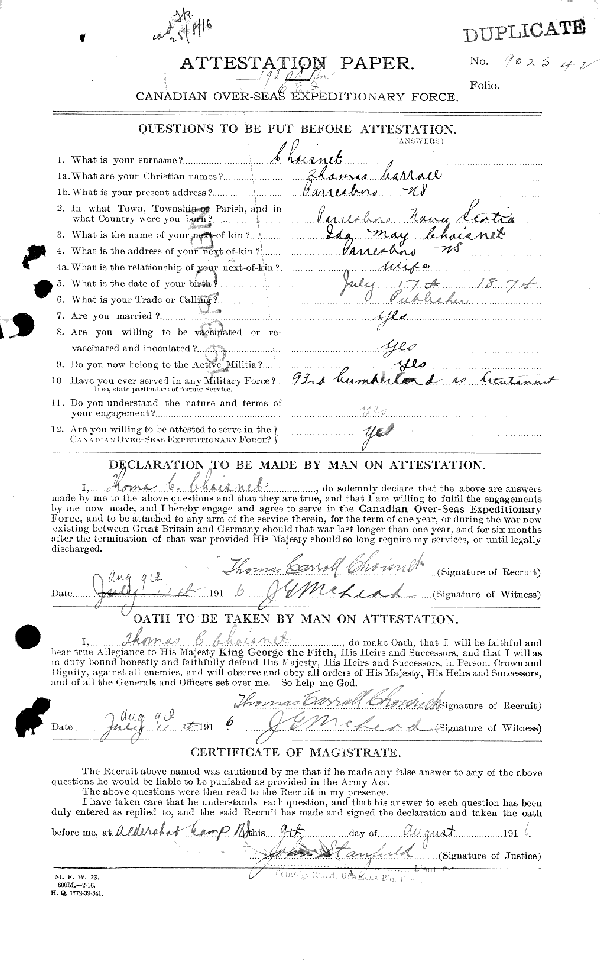 DUPLICATE
ATTESTATION PAPER.
No. 902542
Folio.
CANADIAN OVER-SEAS EXPEDITIONARY FORCE.
QUESTIONS TO BE PUT BEFORE ATTESTATION.
(ANSWERS)
1. What is your surname? Choisnet
1a. What are your Christian names? Thomas Carroll
1b. What is your present address? Parrsboro NS
2. In what Town, Township or Parish, and in
what Country were you born? Parrsboro Nova Scotia
3. What is the name of your next-of-kin? Ida May Choisnet
4. What is the address of your next-of-kin? Parrsboro NS
4a. What is the relationship of your next-of-kin? wife
5. What is the date of your birth? July 17th 1874
6. What is your Trade or Calling? Publisher
7. Are you married? Yes
8. Are you willing to be vaccinated or re-
vaccinated and inoculated? Yes
9. Do you now belong to the Active Militia? Yes
10. Have you ever served in any Military Force? 93rd Cumberland as lieutenant
If so, state particulars of former Service.
11. Do you understand the nature and terms of
your engagement? Yes
12. Are you willing to be attested to serve in the
CANADIAN OVER-SEAS EXPEDITIONARY FORCE? Yes
DECLARATION TO BE MADE BY MAN ON ATTESTATION.
I, Thomas C. Choisnet, do solemnly declare that the above are answers
made by me to the above questions and that they are true, and that I am willing to fulfil the engagements
by me now made, and I hereby engage and agree to serve in the Canadian Over-Seas Expeditionary
Force, and to be attached to any arm of the service therein, for the term of one year, or during the war now
existing between Great Britain and Germany should that war last longer than one year, and for six months
after the termination of that war provided His Majesty should so long require my services, or until legally
discharged.
Thomas Carroll Choisnet (Signature of Recruit)
Aug 9th
Date July 1916 J G McLeod (Signature of Witness)
OATH TO BE TAKEN BY MAN ON ATTESTATION.
I, Thomas C Choisnet, do make Oath, that I will be faithful and
bear true Allegiance to His Majesty King George the Fifth, His Heirs and Successors, and that I will as
in duty bound honestly and faithfully defend His Majesty, His Heirs and Successors, in Person, Crown and
Dignity, against all enemies, and will observe and obey all orders of His Majesty, His Heirs and Successors,
and of all the Generals and Officers set over me. So help me God.
Thomas Carroll Choisnet (Signature of Recruit)
Aug 9th
Date July 1916 J G McLeod (Signature of Witness)
CERTIFICATE OF MAGISTRATE.
The Recruit above named was cautioned by me that if he made any false answer to any of the above
questions he would be liable to be punished as provided in the Army Act.
The above questions were then read to the Recruit in my presence.
I have taken care that he understands each question, and that his answer to each question has been
duly entered as replied to, and the said Recruit has made and signed the declaration and taken the oath
before me, at Aldershot Camp NS this 9th day of August 1916
John Stanfield (Signature of Justice)
M. F. W. 23.
H. Q. 1772-39-841.